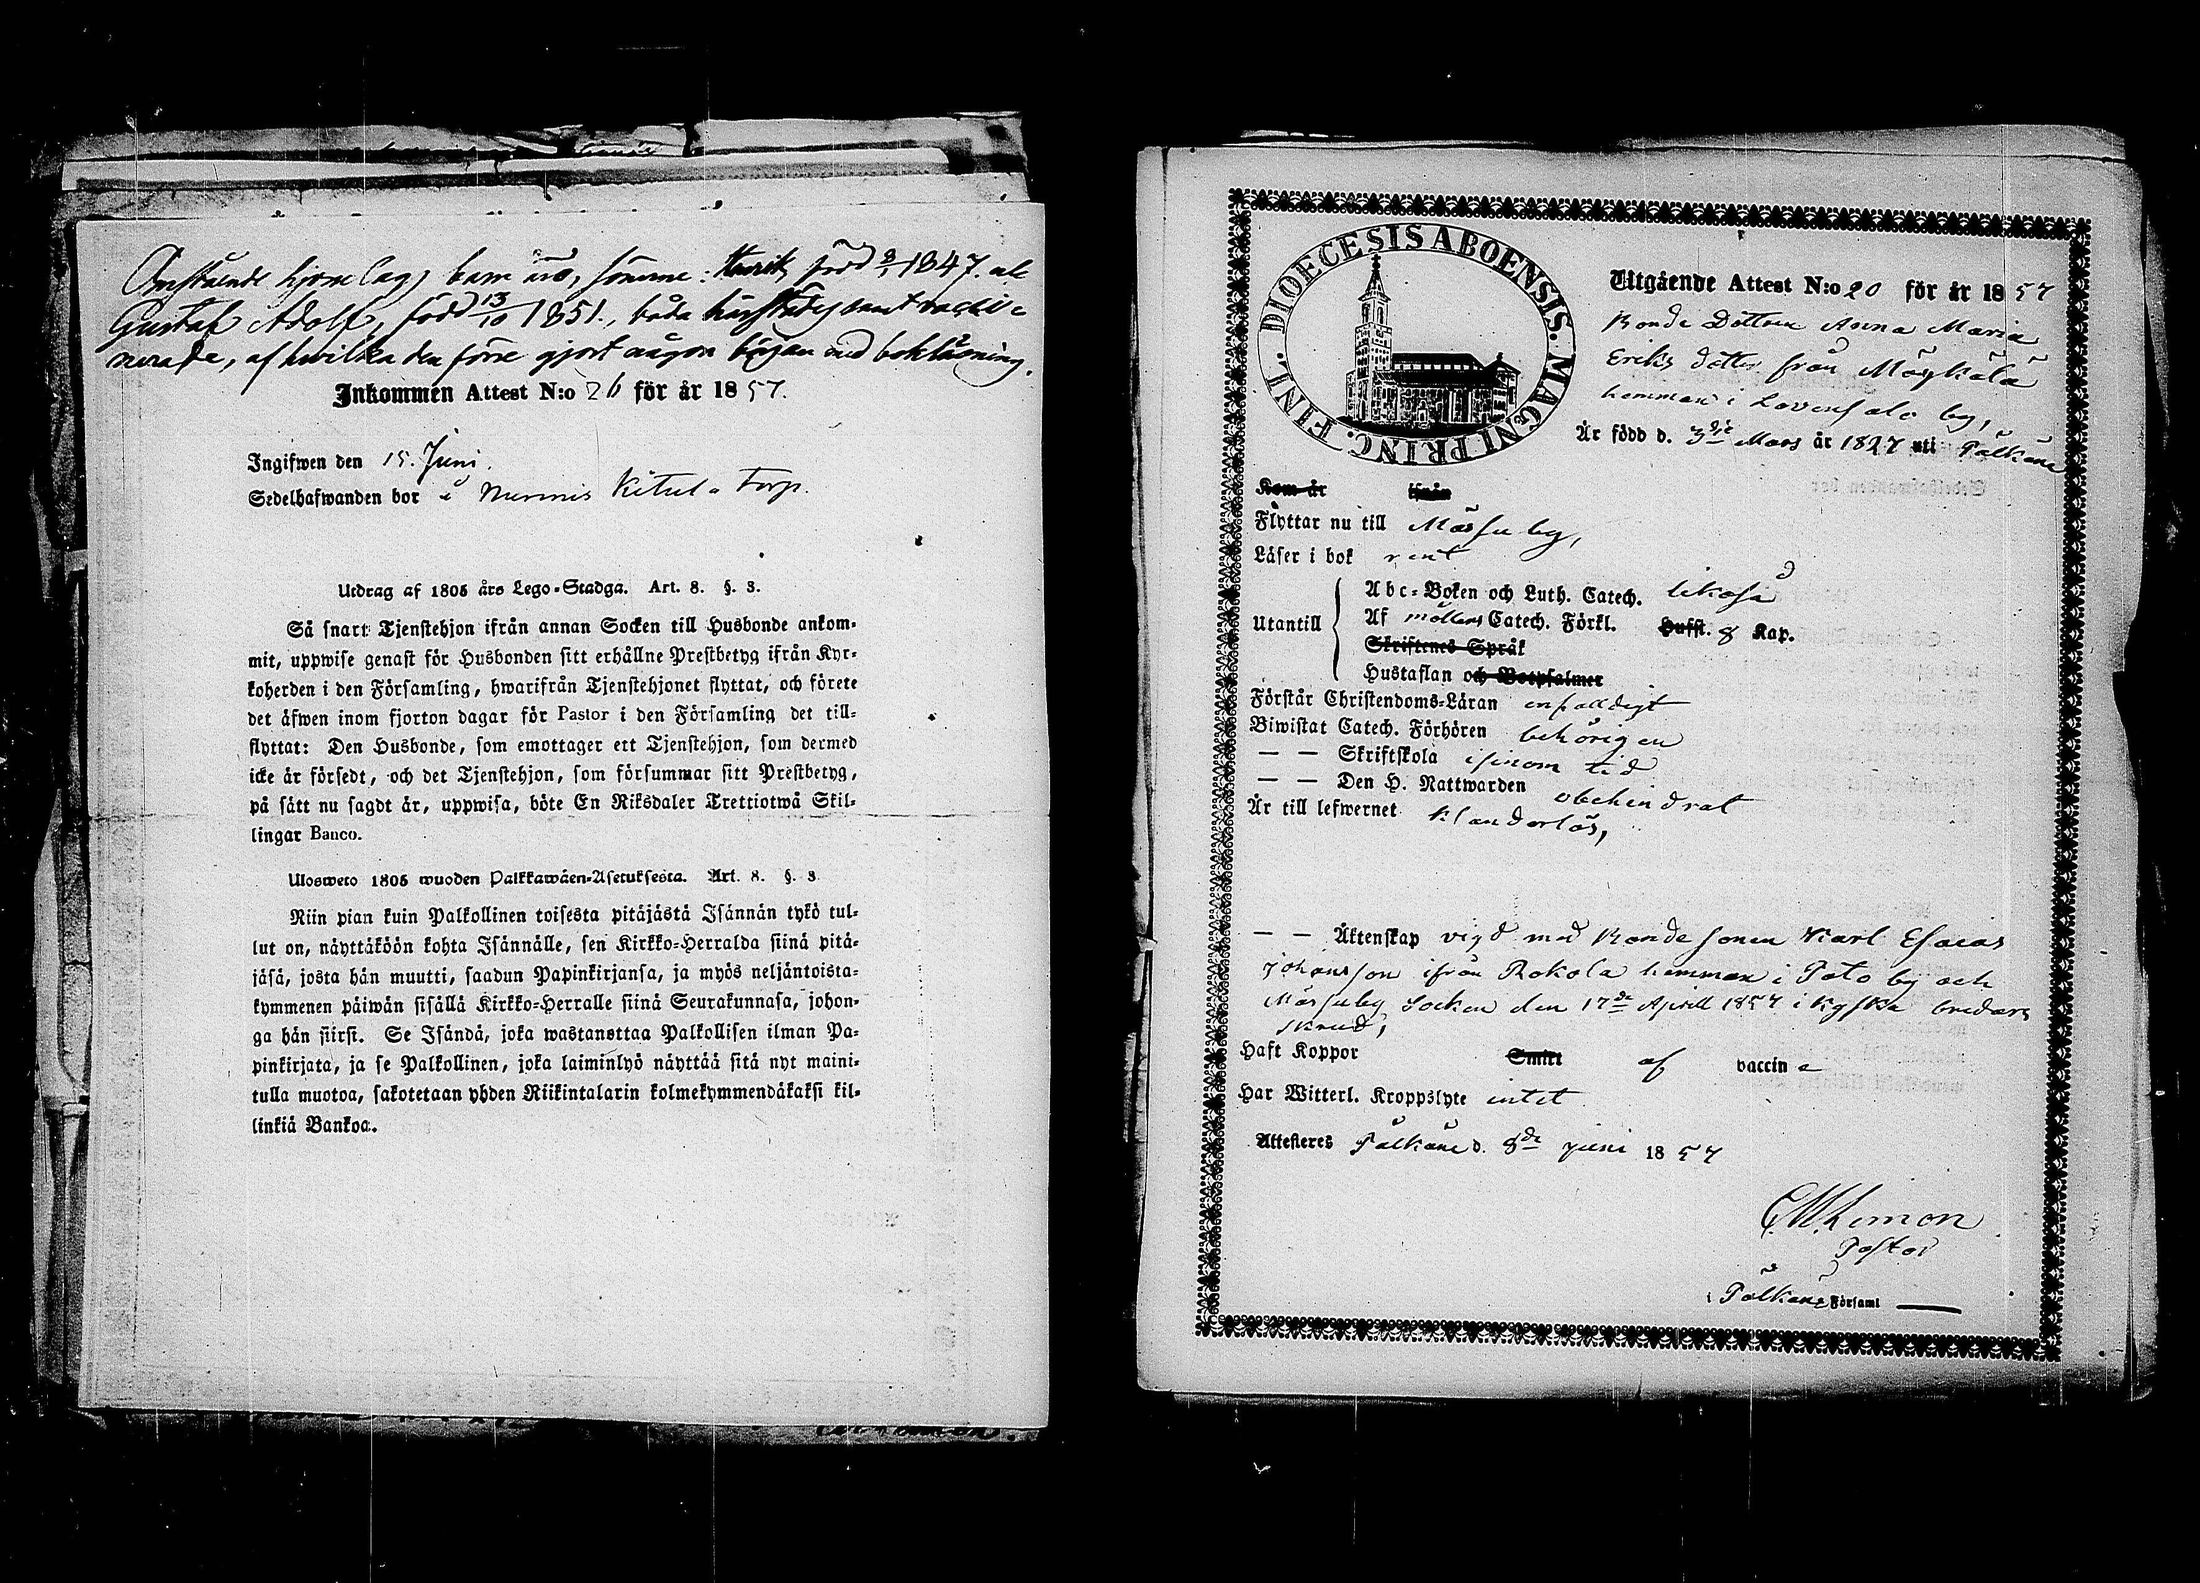 Omstående hjonelags barn äro, sönerne: Henrik, född 9/1 1847. och
Gustaf Adolf, född 13/10 1851., båda härstädes samt vacci-
nerade, af hwilka den förre gjort någon början med bokläsning.
Inkommen Attest N:o 26 för år 1857.
Ingifwen den 15. Juni.
Sedelhafwanden bor i Nurmis Kitula torp.
Utdrag af 1805 års Lego-Stadga. Art. 8. §. 3.
Så snart Tjenstehjon ifrån annan Socken till Husbonde ankom-
mit, uppwise genast för Husbonden sitt erhållne Prestbetyg ifrån Kyr-
koherden i den Församling, hwarifrån Tjenstehjonet flyttat, och förete
det äfwen inom fjorton dagar för Pastor i den Församling det till-
flyttat: Den Husbonde, som emottager ett Tjenstehjon, som dermed
icke är försedt, och det Tjenstehjon, som försummar sitt Prestbetyg,
på sätt nu sagdt är, uppwisa, böte En Riksdaler Trettiotwå Skil-
lingar Banco.
Ulosweto 1805 wuoden Palkkawäen-Asetuksesta. Art. 8. §. 3.
Niin pian kuin Palkollinen toisesta pitäjästä Isännän tykö tul-
lut on, näyttäköön kohta Isännälle, sen Kirkko-Herralda siinä pitä-
jäsä, josta hän muutti, saadun Papinkirjansa, ja myös neljäntoista-
kymmenen päiwän sisällä Kirkko-Herralle siinä Seurakunnasa, johon-
ga hän siirst. Se Isändä, joka wastanottaa Palkollisen ilman Pa-
pinkirjata, ja se Palkollinen, joka laiminlyö näyttää sitä nyt maini-
tulla muotoa, sakotetaan yhden Riikintalarin kolmekymmendäkaksi kil-
linkiä Bankoa.
DIOECESIS ABOENSIS. MAGNI PRINC. FINL.
Utgående Attest N:o 20 för år 1857
Bonde Dottren Anna Maria
Eriks dotter från Mäykälä
hemman i Lovensalo by,
Är född d. 3die Mars år 1827 uti Pälkäne
Kom år ifrån
Flyttar nu till Mässuby,
Läser i bok rent
Utantill
Abc-Boken och Luth. Catech. likaså
Af möllers Catech. Förkl. Hufst. 8 Kap.
Skriftenes Språk
Hustaflan och Botpsalmer
Förstår Christendoms-Läran enfaldigt
Biwistat Catech. Förhören behörigen
— — Skriftskola i sinom tid
— — Den H. Nattwarden obehindrat
Är till lefwernet klanderlös,
— — Äktenskap vigd med Bonde sonen Karl Esaias
Johansson ifrån Rokola hemman i Toto by och
Mässuby Socken den 17de Aprill 1857 i Kyska brudars
skrud,
Haft Koppor Smitt af vaccine
Har Witterl. Kroppslyte intet
Attesteres Pälkäne d. 8de juni 1857
Pastor
i Pälkäne Församl